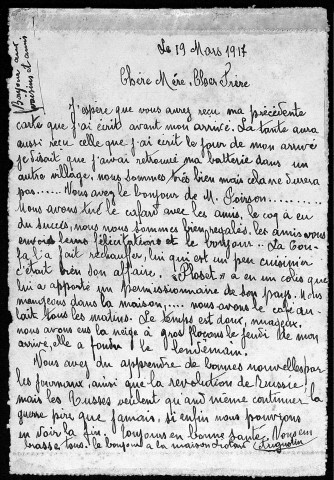 Bonjour aux
voisins et amis
Le 19 Mars 1917
Chère Mère, Cher Frère
J'espère que vous aurez reçu ma précédente
carte que j'ai écrit avant mon arrivé. La tante aura
aussi reçu celle que j'ai écrit le jour de mon arrivé
je disait que j'avai retrouvé ma batterie dans un
autre village, nous sommes très bien mais cela ne durera
pas...... Vous avez le bonjour de M. Poisson........
Nous avons tué le cafard avec les amis, le coq a eu
du succès, nous nous sommes bien regalés, les amis vous
envois leurs félicitations et le bonjour..
l'a fait rechauffer, lui qui est un peu cuisinier
c'était bien son affaire. a eu un colis que
lui a apporté un permissionnaire de son pays. Nous
mangeons dans la maison,...... nous avons le café au
lait tous les matins. Le temps est doux, nuageux.
nous avons eu la neige à gros flocons le jeudi de mon
arrivé, elle a fondu le lendemain.
Vous avez du apprendre de bonnes nouvelles par
les journaux, ainsi que la revolution de Russie!
mais les Russes veulent quand même continuer la
guerre pire que jamais, si enfin nous pouvions
en voir la fin. Toujours en bonne santé. Vous em
brasse tous. le bonjour a la maison